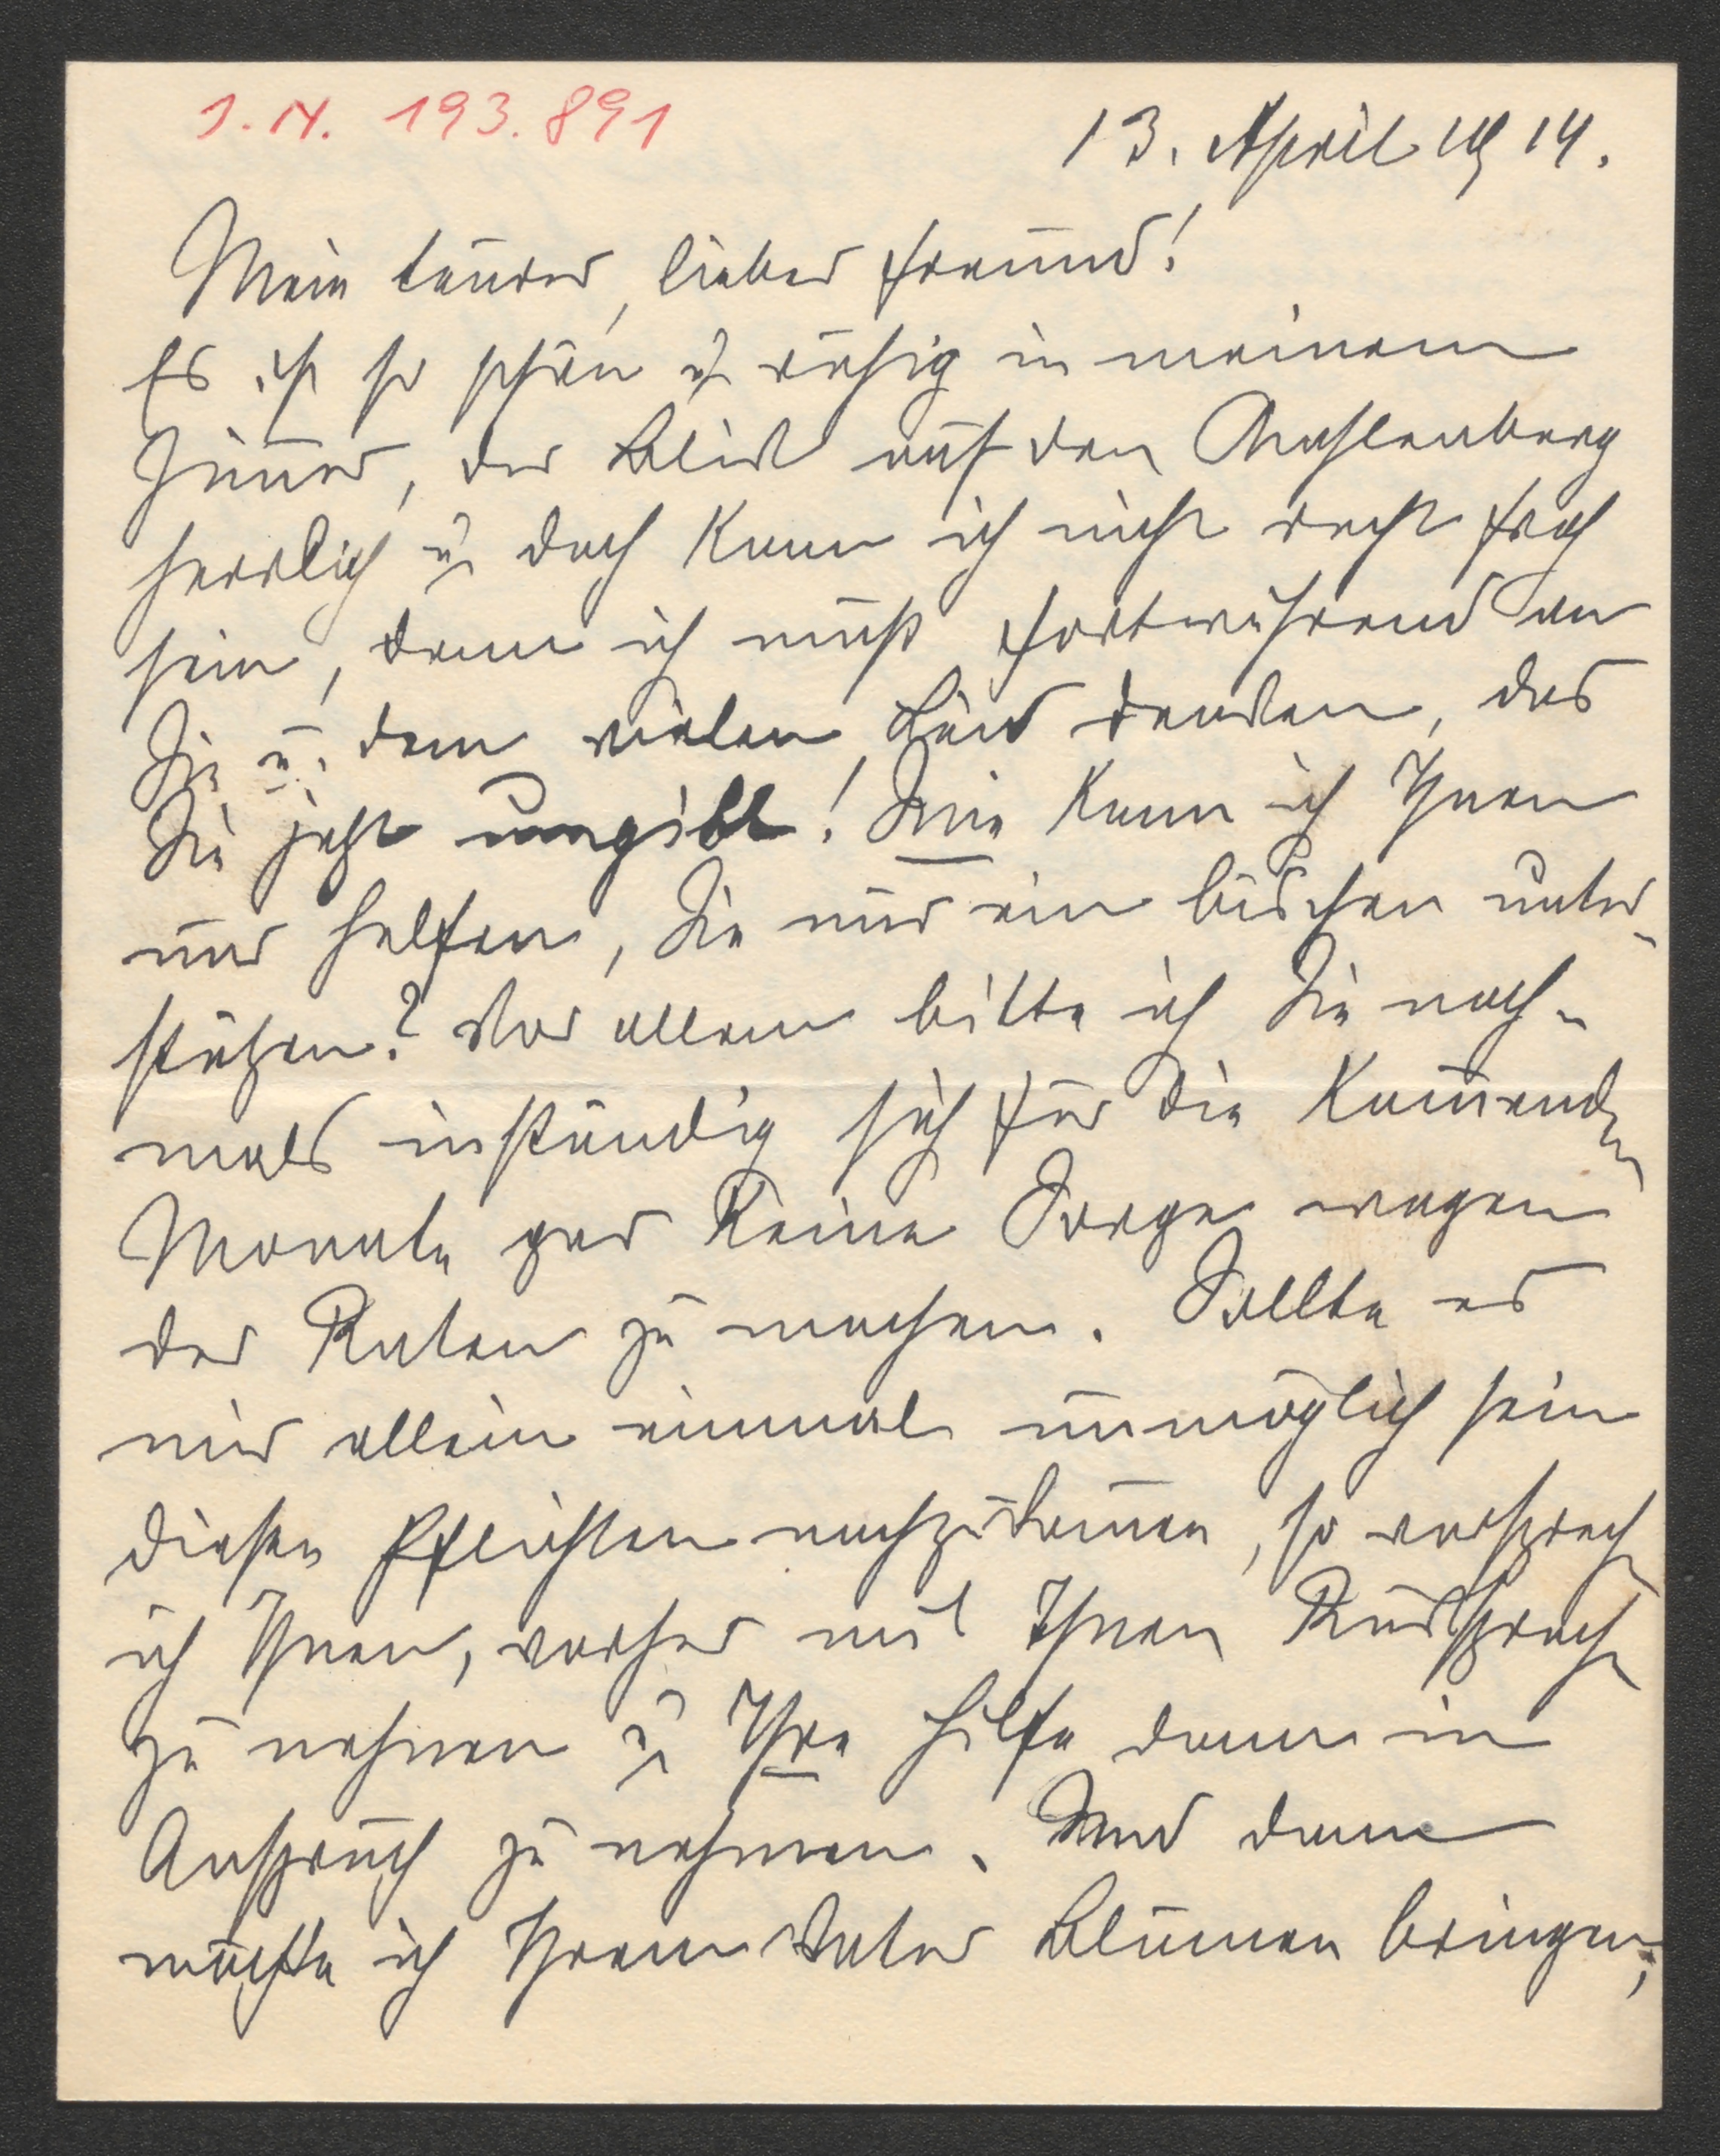 J.N. 193.891
13. April 1914.
Mein teurer, lieber Freund!
Es ist so schön u. ruhig in meinem
Zim̅er, der Blick auf den Kahlenberg
herrlich u. doch kann ich nicht recht froh
sein, denn ich muß fortwährend an
Sie u. dem vielen Leid denken, das
Sie jetzt umgibt! Wie kann ich Ihnen
nur helfen, Sie nur ein bischen unter-
stützen? Vor allem bitte ich Sie noch-
mals inständig sich für die kom̅enden
Monate gar keine Sorge wegen
der Raten zu machen. Sollte es
mir allein einmal unmöglich sein
diesen Pflichten nachzukom̅en, so verspreche
ich Ihnen, vorher mit Ihnen Rücksprache
zu nehmen u. Ihre Hilfe dann in
Anspruch zu nehmen. Und dann
möchte ich Ihrem Vater Blumen bringen,